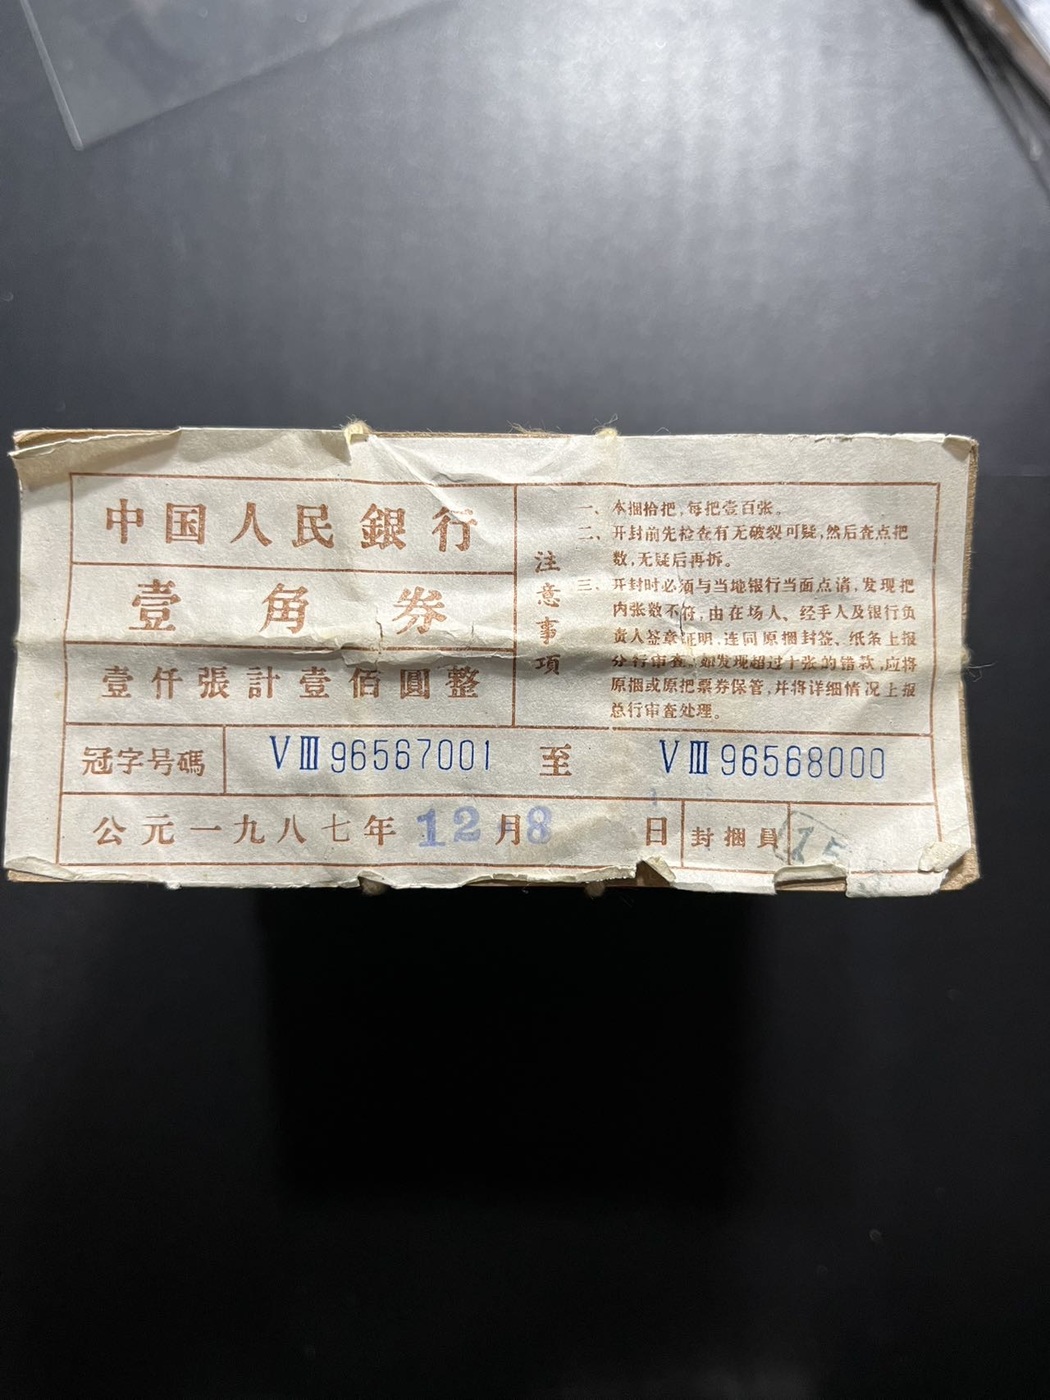 中国人民銀行
壹角券
壹仟張計壹佰圓整
注意事項
一、本捆拾把，每把壹百张。
二、开封前先检查有无破裂可疑，然后查点把
数，无疑后再拆。
三、开封时必须与当地银行当面点清，发现把
内张数不符，由在场人、经手人及银行负
责人签章证明，连同原捆封签、纸条上报
分行审查。如发现超过十张的错款，应将
原捆或原把票券保管，并将详细情况上报
总行审查处理。
冠字号碼 VⅢ96567001 至 VⅢ96568000
公元一九八七年 12 月 8 日 封捆員 75